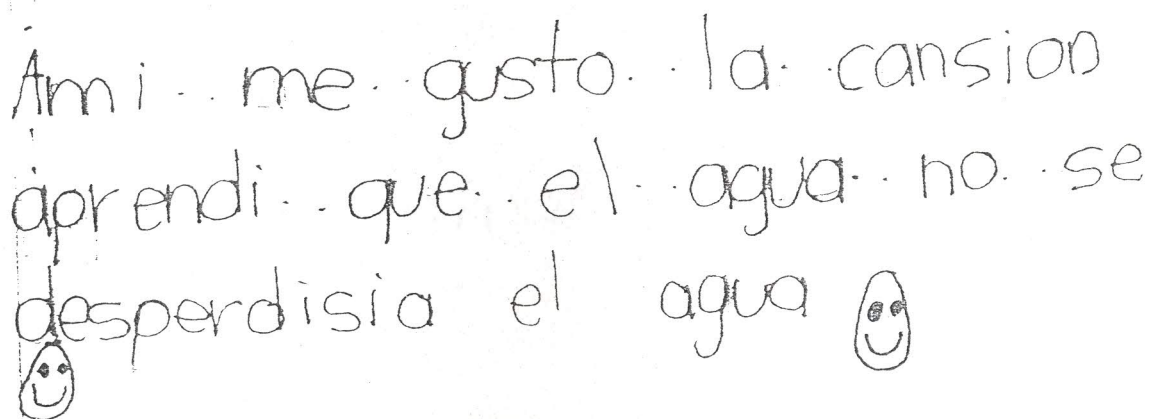 Ami me gusto la cansion
aprendi que el agua no se
desperdisia el agua